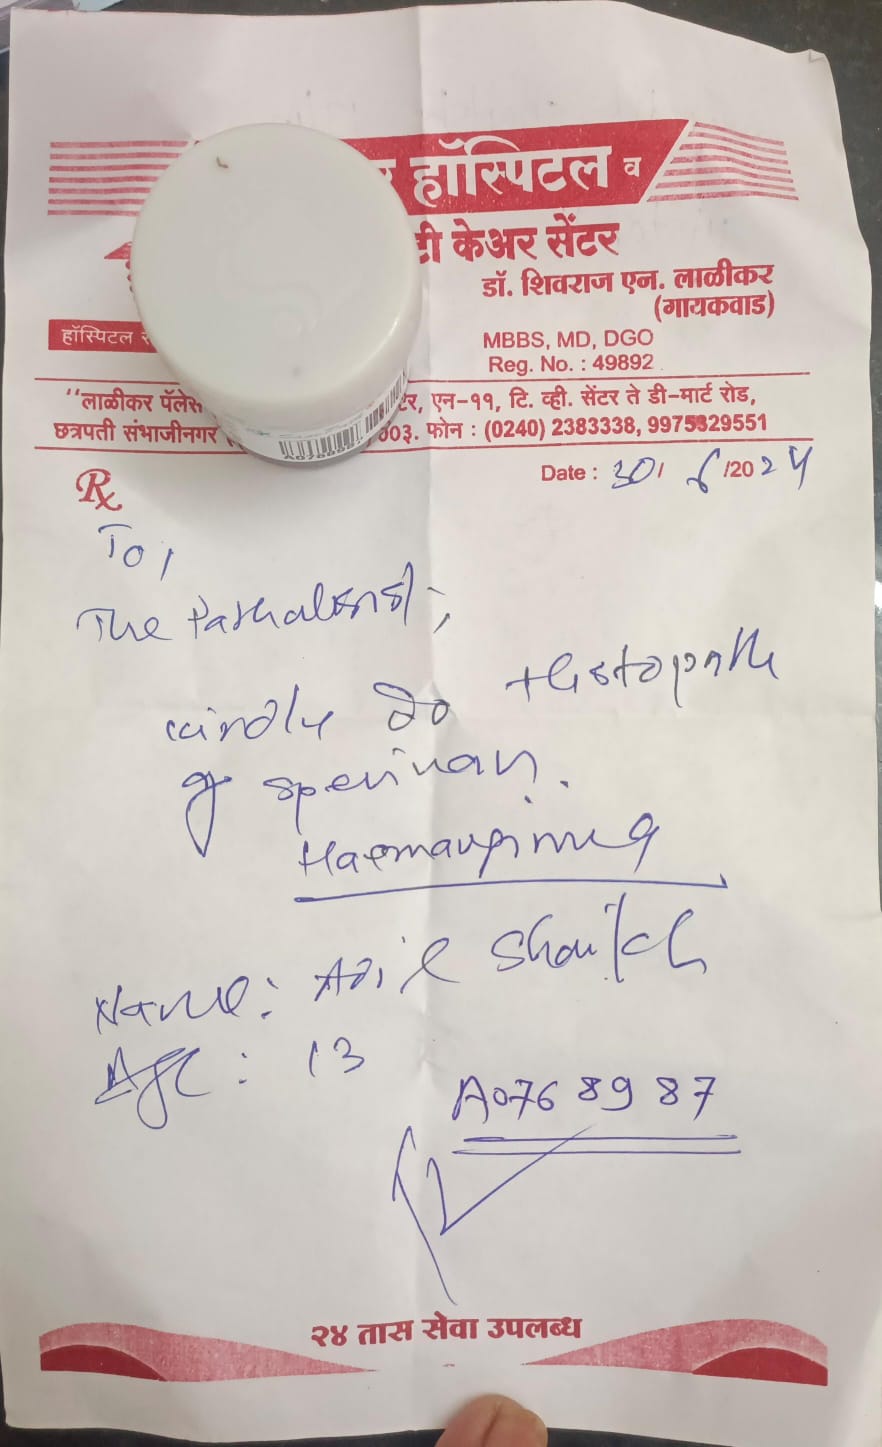 हॉस्पिटल व
टी केअर सेंटर
डॉ. शिवराज एन. लाळीकर
(गायकवाड)
हॉस्पिटल
MBBS, MD, DGO
Reg. No. : 49892
"लाळीकर पॅलेस टर, एन-११, टि. व्ही. सेंटर ते डी-मार्ट रोड,
छत्रपती संभाजीनगर ००३. फोन : (0240) 2383338, 9975329551
Rx
Date : 30/ 6/2024
To,
The Pathalogist,
kindly do Histopath
of speciman.
Haemangioma
Name: Adil Shaikh
Age: 13
A0768987
२४ तास सेवा उपलब्ध